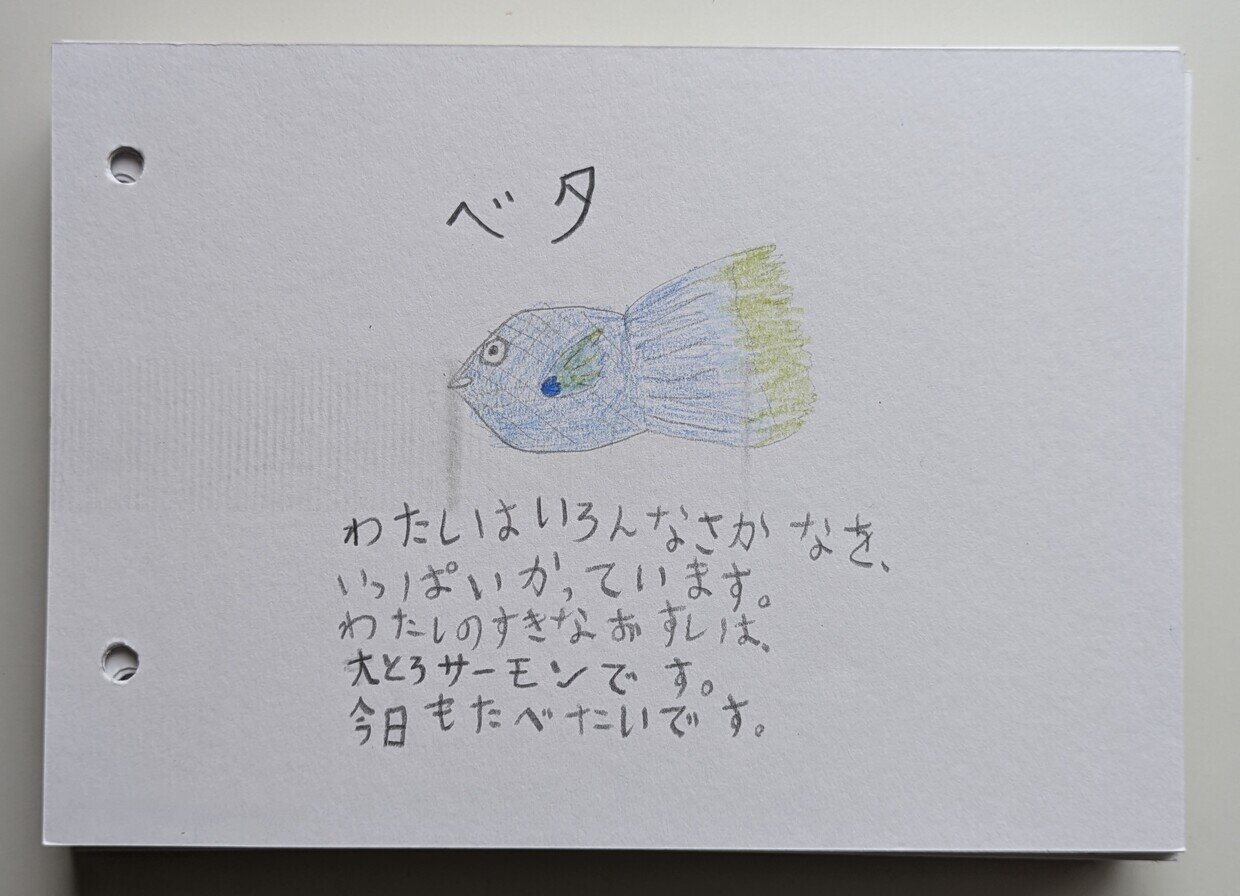 ベタ
わたしはいろんなさかなを、
いっぱいかっています。
わたしのすきなおすしは、
大とろサーモンです。
今日もたべたいです。